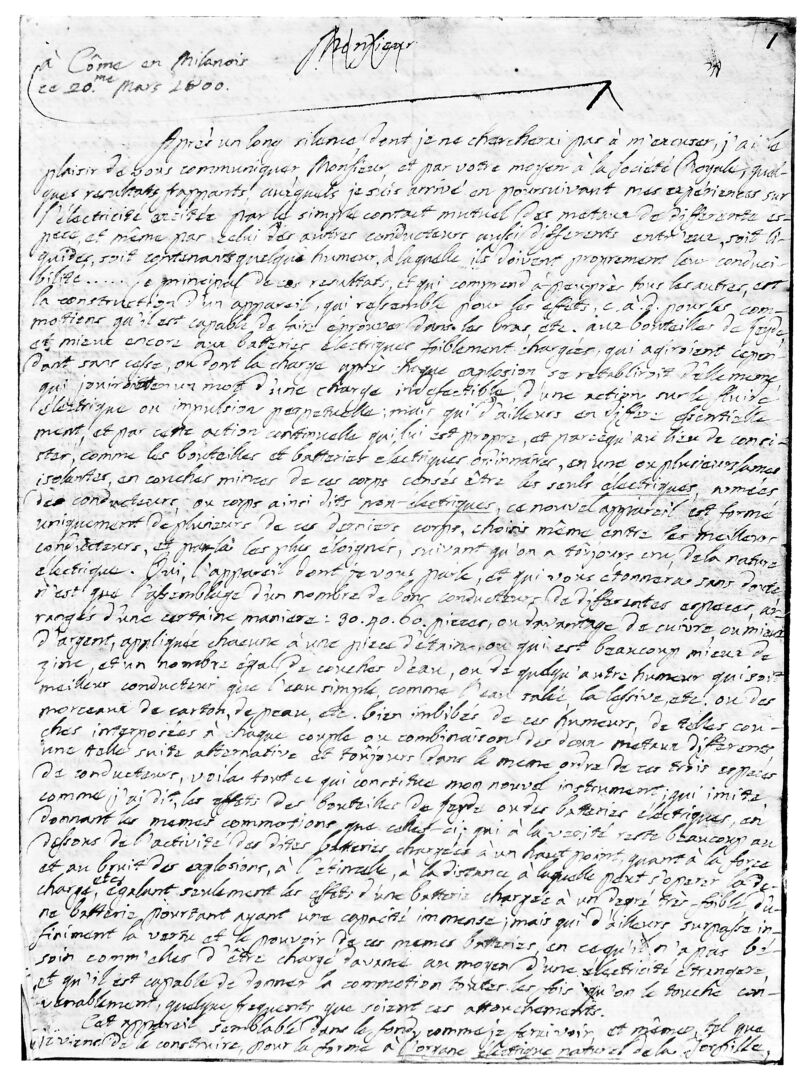 1
Monsieur
à Côme en Milanois
ce 20.me Mars 1800.
Après un long silence, dont je ne chercherai pas à m'excuser, j'ai le
plaisir de vous communiquer, Monsieur, et par votre moyen à la Societé Royale, quel-
ques resultats frappants auxquels je suis arrivé en poursuivant mes expériences sur
l'électricité excitée par le simple contact mutuel des metaux de differente es-
pece, et même par celui des autres conducteurs aussi differents entr'eux, soit li-
quides, soit contenants quelque humeur, à laquelle ils doivent proprement leur conduci-
bilité..... Le principal de ces resultats, et qui comprend à peuprès tous les autres, est
la construction d'un appareil, qui ressemble pour les effets, c. à. d. pour les com-
motions qu'il est capable de faire éprouver dans les bras etc. aux bouteilles de Leyde,
et mieux encore aux batteries électriques foiblement chargées, qui agiroient cepen-
dant sans cesse, ou dont la charge après chaque explosion se retabliroit d'elle même
qui jouiroit en un mot d'une charge indefectible, d'une action sur le fluide
électrique ou impulsion perpetuelle; mais qui d'ailleurs en differe essentielle-
ment, et par cette action continuelle qui lui est propre, et parcequ'au lieu de consi-
ster, comme les bouteilles et batteries electriques ordinaires, en une ou plusieurs lames
isolantes, en couches minces de ces corps censés être les seuls électriques, armées
de conducteurs, ou corps ainsi dits non-électriques, ce nouvel appareil est formé
uniquement de plusieurs de ces derniers corps, choisis même entre les meilleurs
conducteurs, et par là les plus éloignés, suivant qu'on a toujours cru, de la nature
electrique. Oui, l'appareil dont je vous parle, et qui vous etonnera sans doute,
n'est que l'assemblage d'un nombre de bons conducteurs de differentes especes, ar-
rangés d'une certaine maniere: 30. 40. 60. pieces, ou davantage de cuivre, ou mieux
d'argent, appliquée chacune à une piece d'étain, ou qui est beaucoup mieux de
zinc, et un nombre égal de couches d'eau, ou de quelqu'autre humeur qui soit
meilleur conducteur que l'eau simple, comme l'eau salée la lessive, etc. ou des
morceaux de carton, de peau, etc. bien imbibés de ces humeurs, de telles cou-
ches interposées à chaque couple ou combinaison des deux metaux differents
une telle suite alternative et toujours dans le meme ordre de ces trois especes
de conducteurs, voila tout ce qui constitue mon nouvel instrument, qui imite,
comme j'ai dit, les effets des bouteilles de Leyde ou des batteries électriques, en
donnant les memes commotions que celles-ci; qui à la verité reste beaucoup au
dessous de l'activité des dites batteries chargées à un haut point, quant à la force
et au bruit des explosions, à l'étincelle, à la distance à laquelle peut s'operer la de-
charge, etc, égalant seulement les effets d'une batterie chargée à un degré très-foible, d'u-
ne batterie pourtant ayant une capacité immense; mais qui d'ailleurs surpasse in-
finiment la vertu et le pouvoir de ces memes batteries, en ce qu'il n'a pas be-
soin comm'elles d'être chargé d'avance au moyen d'une electricité étrangere,
et qu'il est capable de donner la commotion toutes les fois qu'on le touche con-
venablement, quelque frequents que soient ces attouchements.
Cet appareil semblable dans le fond, comme je ferai voir, et même tel que
je viens de le construire, pour la forme à l'organe électrique naturel de la Torpille,